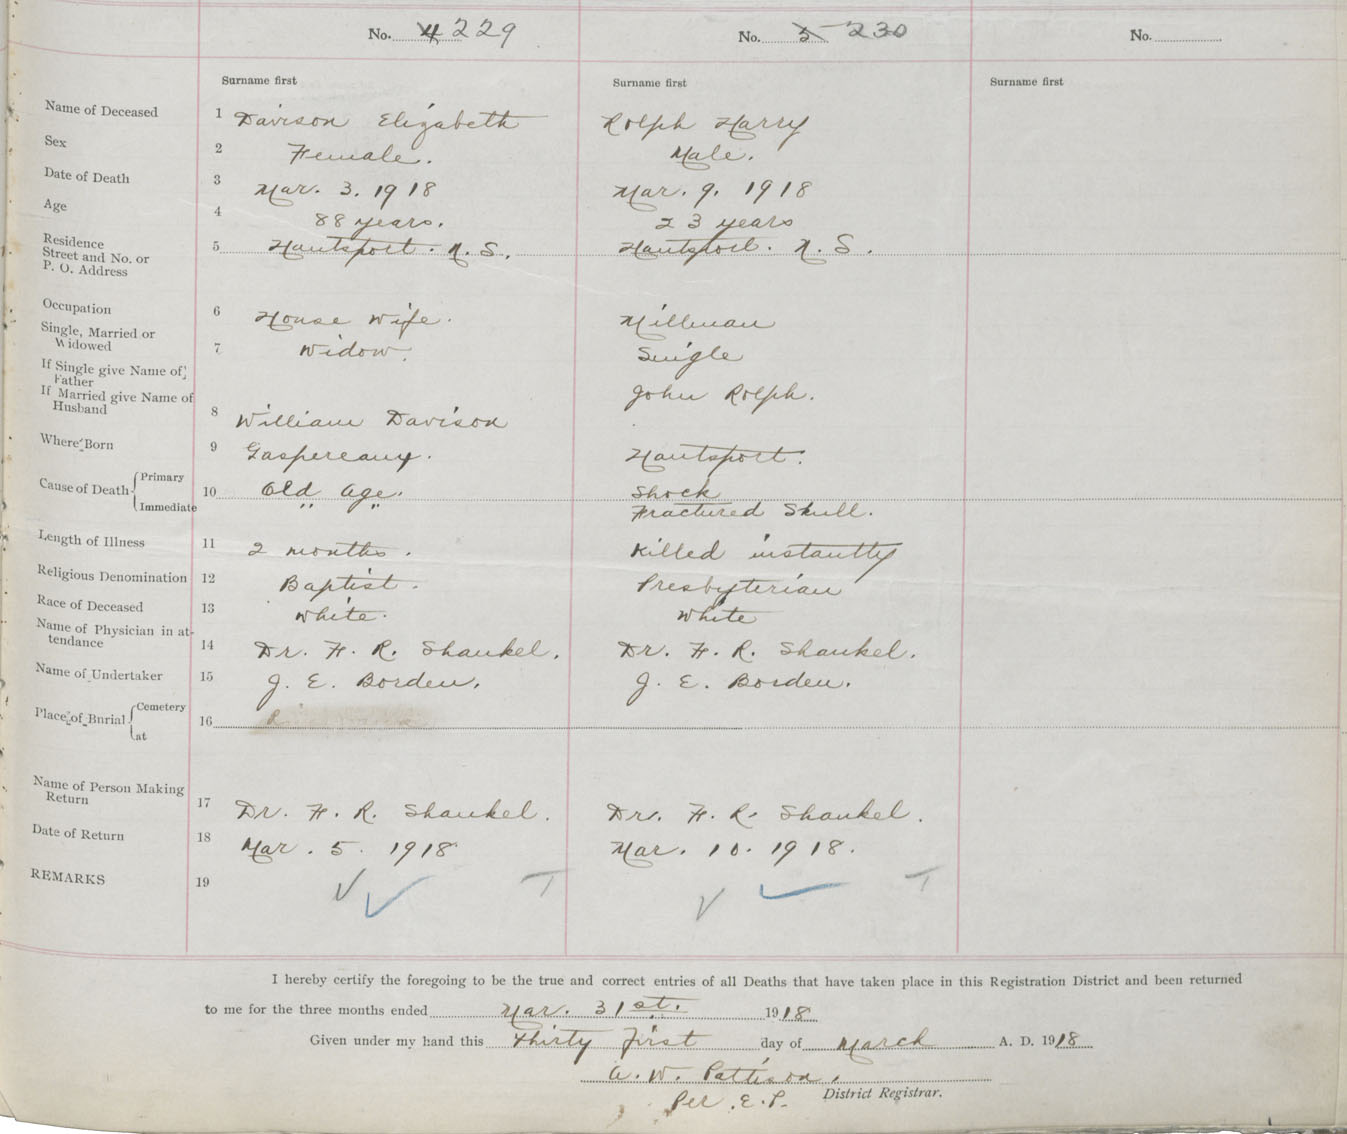 No. 4 229 No. 5 230 No.
Surname first Surname first Surname first
Name of Deceased 1 Davison Elizabeth Rolph Harry
Sex 2 Female. Male.
Date of Death 3 Mar. 3. 1918 Mar. 9. 1918
Age 4 88 years. 23 years
Residence
Street and No. or
P. O. Address 5 Hantsport. N. S. Hantsport. N. S.
Occupation 6 House Wife. Millman
Single, Married or
Widowed 7 Widow. Single
If Single give Name of
Father John Rolph.
If Married give Name of
Husband 8 William Davison
Where Born 9 Gaspereauy. Hantsport.
Cause of Death { Primary 10 Old Age. Shock
Immediate " " Fractured Skull.
Length of Illness 11 2 months. Killed instantly
Religious Denomination 12 Baptist. Presbyterian
Race of Deceased 13 White. White
Name of Physician in at-
tendance 14 Dr. F. R. Shankel. Dr. F. R. Shankel.
Name of Undertaker 15 J. E. Borden. J. E. Borden.
Place of Burial { Cemetery 16
at
Name of Person Making
Return 17 Dr. F. R. Shankel. Dr. F. R. Shankel.
Date of Return 18 Mar. 5. 1918 Mar. 10. 1918.
REMARKS 19 T T
I hereby certify the foregoing to be the true and correct entries of all Deaths that have taken place in this Registration District and been returned
to me for the three months ended Mar. 31st. 1918
Given under my hand this Thirty First day of March A. D. 1918
A. W. Pattison.
Per. E. P. District Registrar.